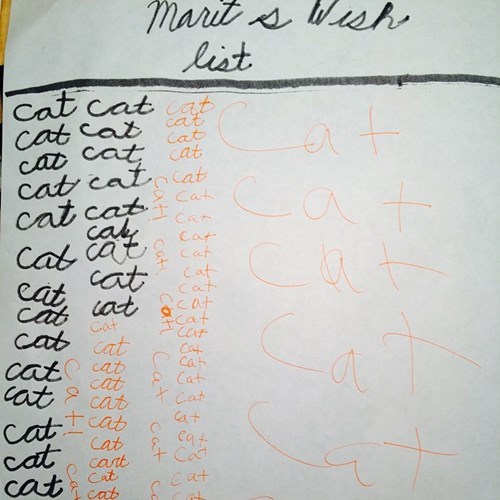 Marit s Wish
list
cat cat cat
cat
cat cat cat Cat
cat cat cat
cat cat cat
Cat!!
cat
cat cat cat Cat
cat cat
cat cat cat
Cat
cat cat cat Cat
cat
cat cat cat
Cat!!
cat cat cat
cat cat
cat cat cat Cat
cat cat cat
Cat!!
Cat
cat cat cat
cat cat
cat cat
cat cat Cat
Cat
cat cart cat
cat cat cat
Cat
cat cat